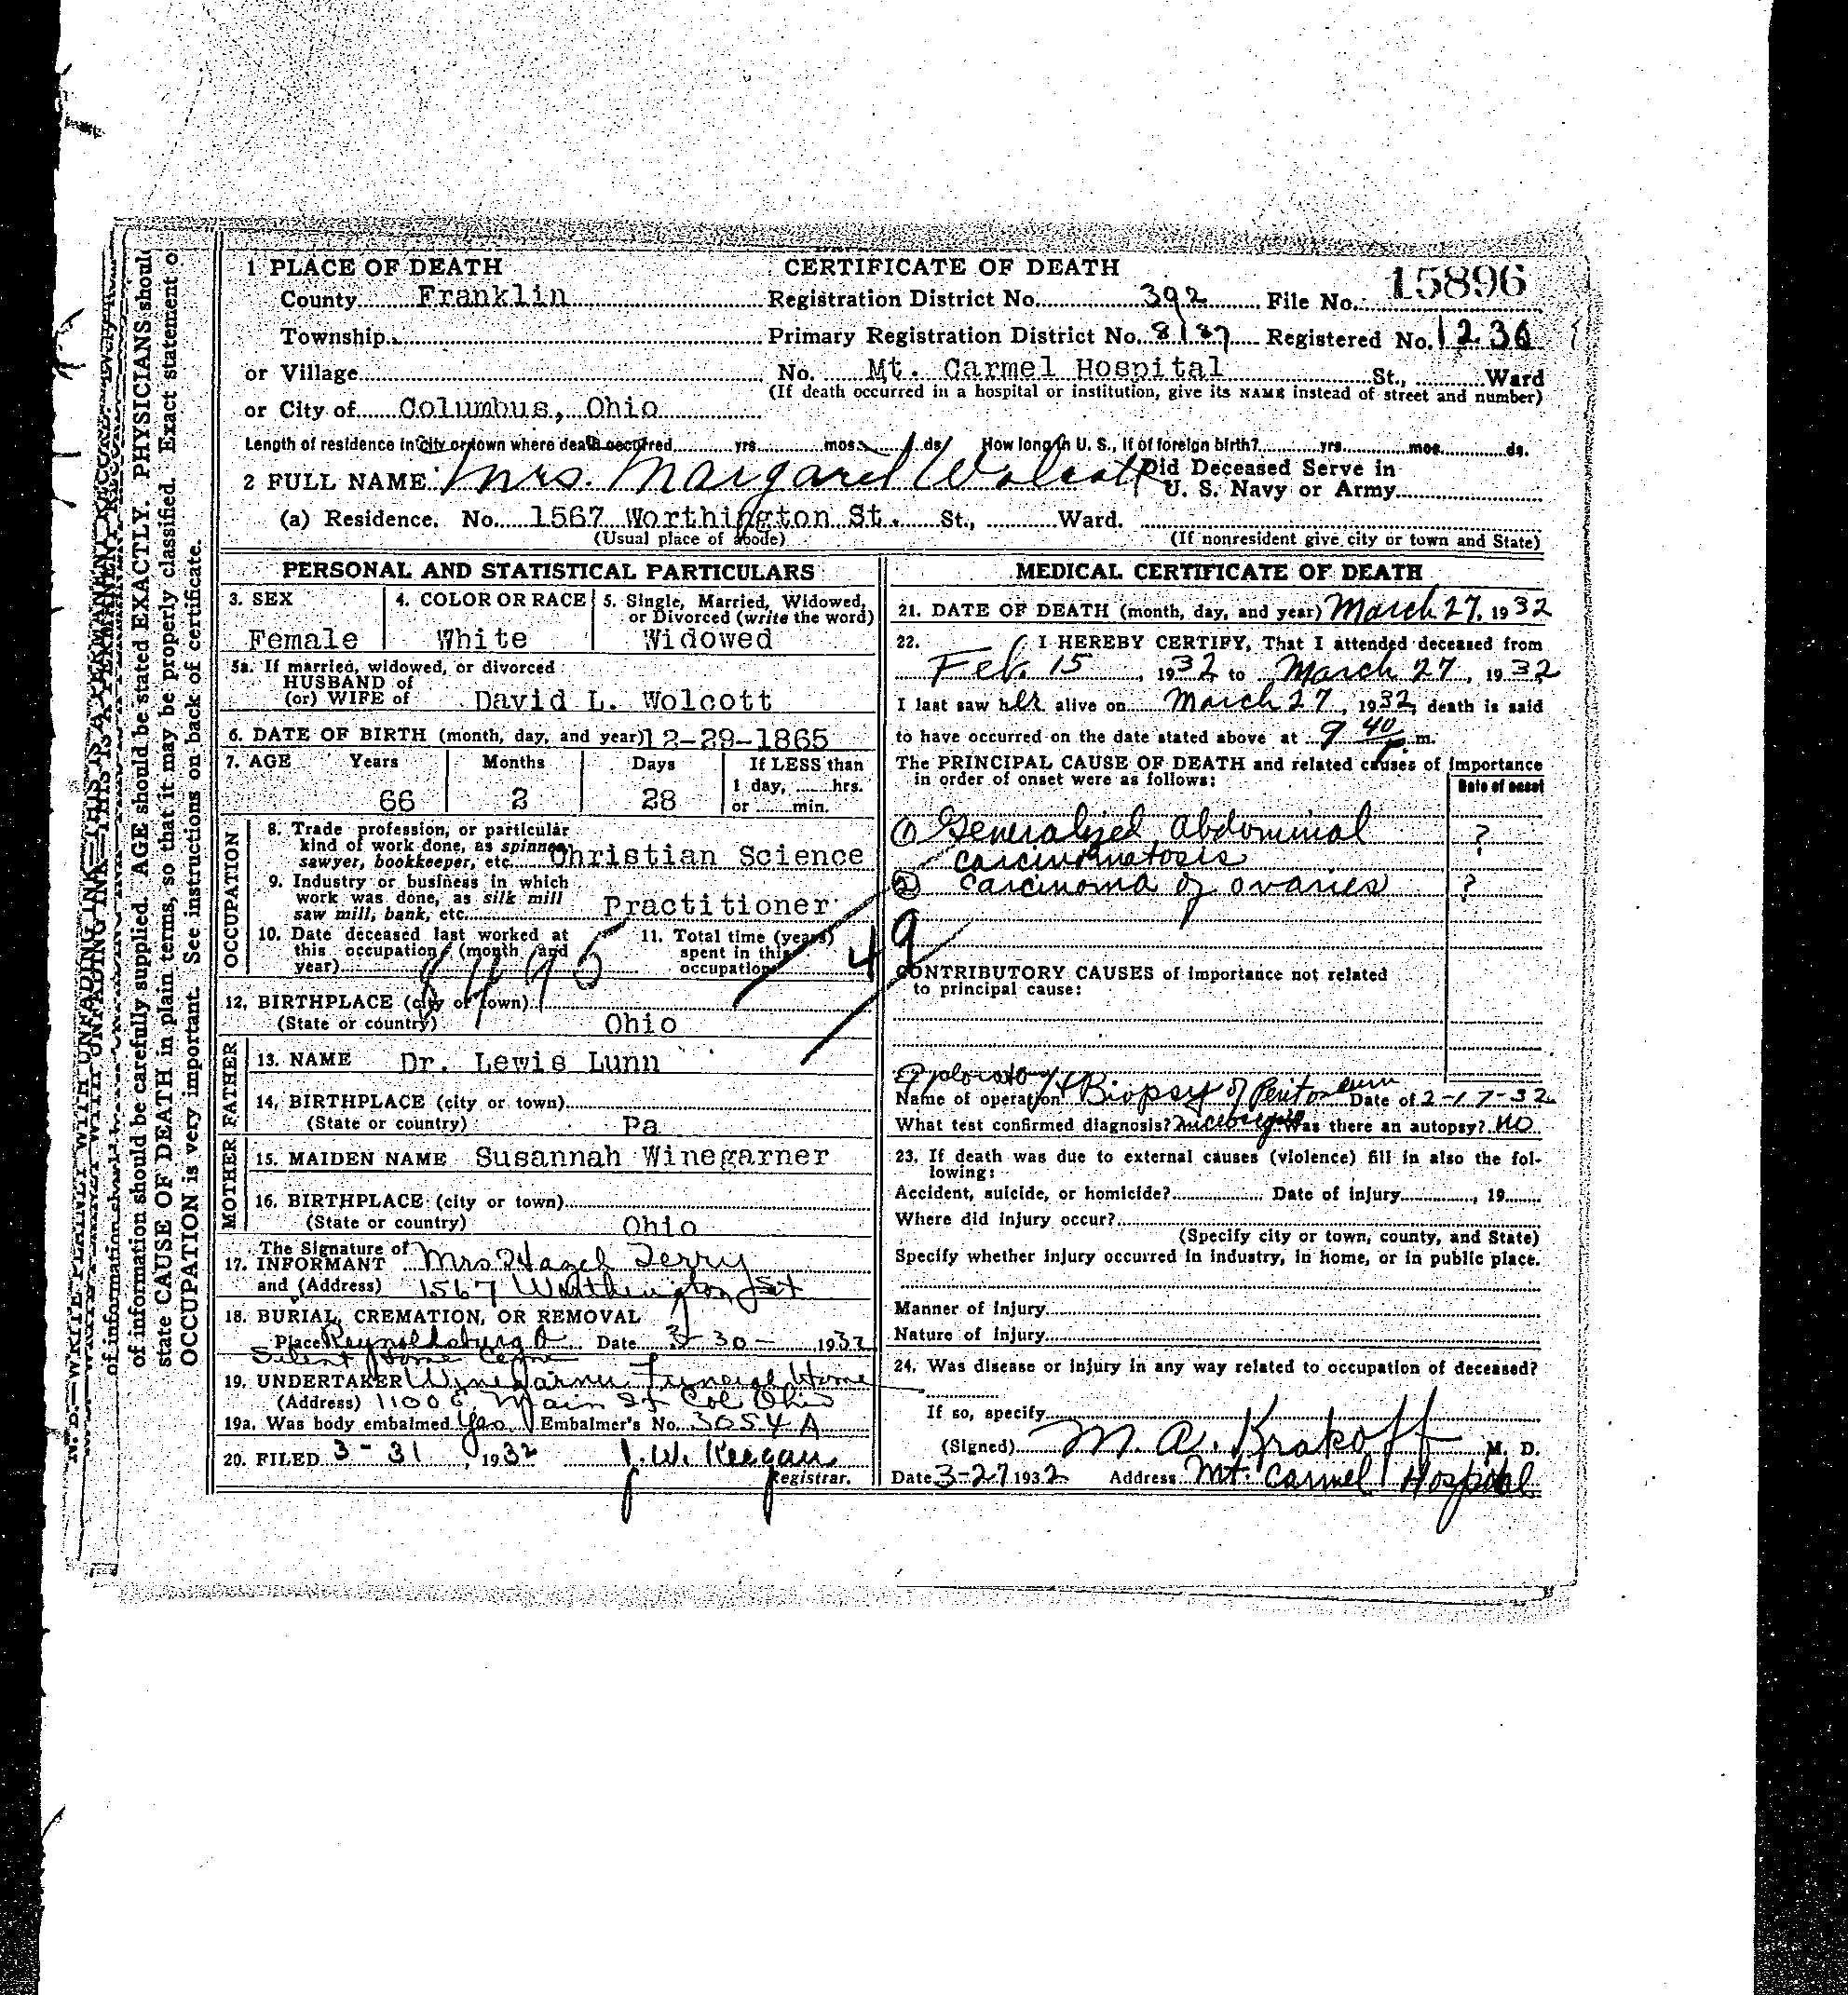 1 PLACE OF DEATH
CERTIFICATE OF DEATH
15896
County Franklin
Registration District No. 392 File No.
Township
Primary Registration District No. 8187 Registered No. 1236
or Village
No. Mt. Carmel Hospital St., Ward
or City of Columbus, Ohio
(If death occurred in a hospital or institution, give its NAME instead of street and number)
Length of residence in city or town where death occurred yrs. mos. ds. How long in U. S., if of foreign birth? yrs. mos. ds.
2 FULL NAME Mrs. Margaret Wolcott
Did Deceased Serve in
U. S. Navy or Army
(a) Residence. No. 1567 Worthington St. St., Ward.
(Usual place of abode)
(If nonresident give city or town and State)
PERSONAL AND STATISTICAL PARTICULARS
3. SEX
Female
4. COLOR OR RACE
White
5. Single, Married, Widowed,
or Divorced (write the word)
Widowed
5a. If married, widowed, or divorced
HUSBAND of
(or) WIFE of David L. Wolcott
6. DATE OF BIRTH (month, day, and year) 12-29-1865
7. AGE Years Months Days If LESS than
1 day, hrs.
66 2 28 or min.
OCCUPATION
8. Trade profession, or particular
kind of work done, as spinner,
sawyer, bookkeeper, etc. Christian Science
9. Industry or business in which
work was done, as silk mill
saw mill, bank, etc. Practitioner
10. Date deceased last worked at
this occupation (month and
year)
11. Total time (years)
spent in this
occupation
49
12. BIRTHPLACE (city or town)
(State or country) Ohio
FATHER
13. NAME Dr. Lewis Lunn
14. BIRTHPLACE (city or town)
(State or country) Pa
MOTHER
15. MAIDEN NAME Susannah Winegarner
16. BIRTHPLACE (city or town)
(State or country) Ohio
The Signature of
17. INFORMANT Mrs Hazel Terry
and (Address) 1567 Worthington St
18. BURIAL, CREMATION, OR REMOVAL
Place Reynoldsburg O Date 3-30- 1932
Silent Home Ceme
19. UNDERTAKER Winegarner Funeral Home
(Address) 1100 E Main St Col Ohio
19a. Was body embalmed Yes Embalmer's No. 3054 A
20. FILED 3-31, 1932 J. W. Keegan
Registrar.
MEDICAL CERTIFICATE OF DEATH
21. DATE OF DEATH (month, day, and year) March 27, 1932
22. I HEREBY CERTIFY, That I attended deceased from
Feb. 15, 1932 to March 27, 1932
I last saw her alive on March 27, 1932, death is said
to have occurred on the date stated above at 9 40 P. m.
The PRINCIPAL CAUSE OF DEATH and related causes of importance
in order of onset were as follows:
Date of onset
(1) Generalized abdominal ?
carcinomatosis
(2) Carcinoma of ovaries ?
CONTRIBUTORY CAUSES of importance not related
to principal cause:
Exploratory &
Name of operation Biopsy of Peritoneum Date of 2-17-32
What test confirmed diagnosis? Was there an autopsy? no
23. If death was due to external causes (violence) fill in also the fol-
lowing:
Accident, suicide, or homicide? Date of injury, 19
Where did injury occur?
(Specify city or town, county, and State)
Specify whether injury occurred in industry, in home, or in public place.
Manner of injury
Nature of injury
24. Was disease or injury in any way related to occupation of deceased?
If so, specify
(Signed) M. A. Krakoff M. D.
Date 3-27 1932 Address Mt. Carmel Hospital
of information should be carefully supplied. AGE should be stated EXACTLY. PHYSICIANS should
state CAUSE OF DEATH in plain terms, so that it may be properly classified. Exact statement o
OCCUPATION is very important. See instructions on back of certificate.